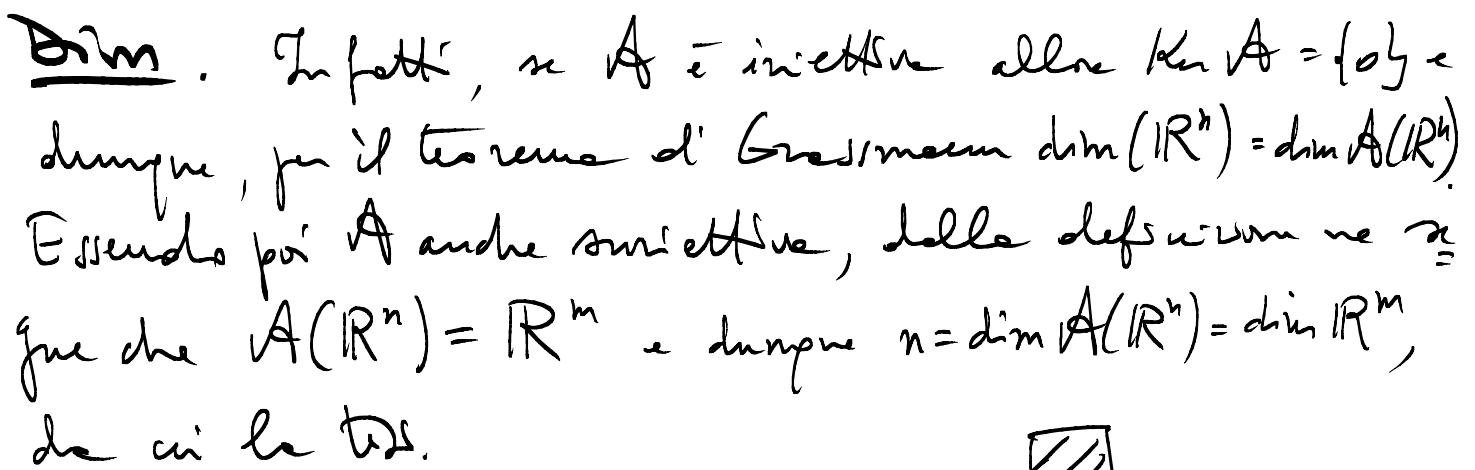 Dim. Infatti, se A è iniettiva allora Ker A = {0} e
dunque, per il teorema di Grassmann dim(ℝⁿ) = dim A(ℝⁿ).
Essendo poi A anche suriettiva, dalla definizione ne se
gue che A(ℝⁿ) = ℝᵐ e dunque n = dim A(ℝⁿ) = dim ℝᵐ,
da cui la tesi.